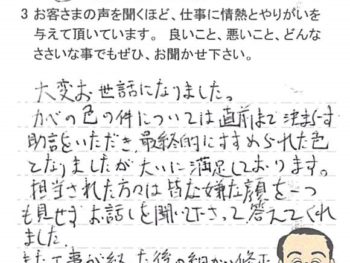 3 お客さまの声を聞くほど、仕事に情熱とやりがいを
与えて頂いています。 良いこと、悪いこと、どんな
ささいな事でもぜひ、お聞かせ下さい。
大変お世話になりました。
かべの色の件については直前まで決まらず
助言をいただき、最終的にすすめられた色
となりましたが大いに満足しております。
担当された方々は皆な嫌な顔を一つ
も見せず、お話しを聞い下さって答えてくれ
ました。
また工事が終った後の細かい修正